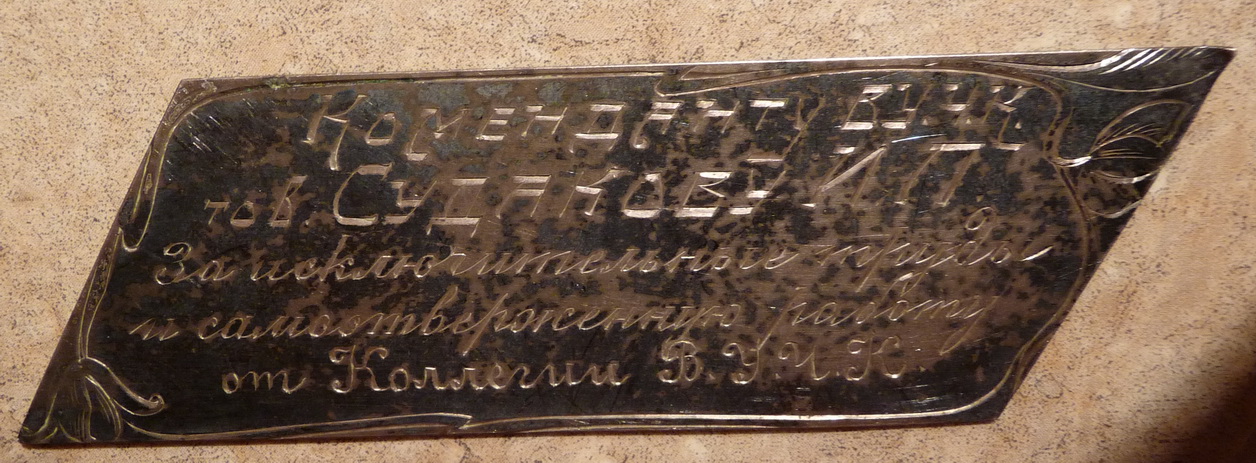 Коменданту ВУЧК
тов. Судакову И П.
За исключительные труды
и самоотверженную работу
от Коллегии В.У.Ч.К.